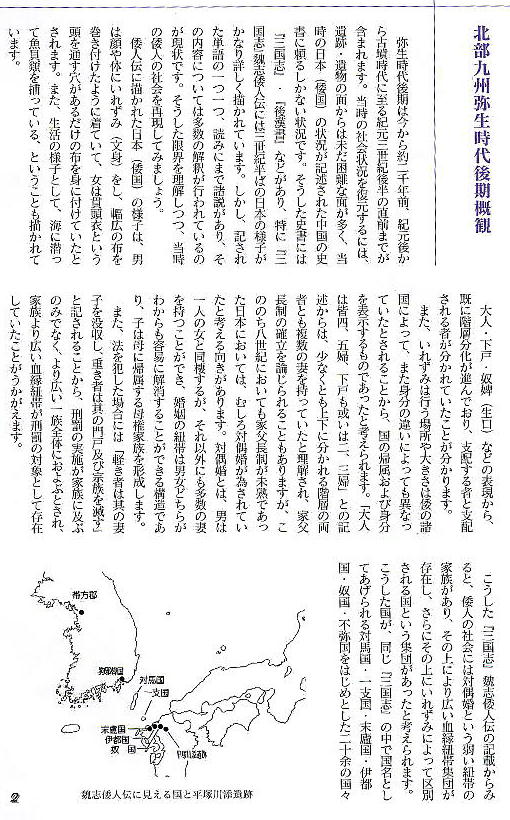 北部九州弥生時代後期概観
弥生時代後期は今から約二千年前、紀元後か
ら古墳時代に至る紀元三世紀後半の直前までが
含まれます。当時の社会状況を復元するには、
遺跡・遺物の面からは未だ困難な面が多く、当
時の日本（倭国）の状況が記述された中国の史
書に頼るしかない状況です。そうした史書には
『三国志』・『後漢書』などがあり、特に『三
国志』魏志倭人伝には三世紀半ばの日本の様子が
かなり詳しく描かれています。しかし、記され
た単語の一つ一つ、読みにまで諸説があり、そ
の内容については多数の解釈が行われているの
が現状です。そうした限界を理解しつつ、当時
の倭人の社会を再現してみましょう。
倭人伝に描かれた日本（倭国）の様子は、男
は顔や体にいれずみ（文身）をし、幅広の布を
巻き付けたように着ていて、女は貫頭衣という
頭を通す穴があるだけの布を身に付けていたと
されます。また、生活の様子として、海に潜っ
て魚貝類を捕っている、ということも描かれて
います。
大人・下戸・奴婢（生口）などの表現から、
既に階層分化が進んでおり、支配する者と支配
される者が分かれていたことが分かります。
また、いれずみは行う場所や大きさは倭の諸
国によって、また身分の違いによっても異なっ
ていたとされることから、国の帰属および身分
を表示するものであったと考えられます。「大人
は皆四、五婦、下戸も或いは二、三婦」との記
述からは、少なくとも上下に分かれる階層の両
者とも複数の妻を持っていたと理解され、家父
長制の確立を論じられることもありますが、こ
ののち八世紀においても家父長制が未熟であっ
た日本においては、むしろ対偶婚が為されてい
たと考える向きがあります。対偶婚とは、男は
一人の女と同棲するが、それ以外にも多数の妻
を持つことができ、婚姻の紐帯は男女どちらが
わからも容易に解消することができる構造であ
り、子は母に帰属する母権家族を形成します。
また、法を犯した場合には「軽き者は其の妻
子を没収し、重き者は其の門戸及び宗族を滅す」
と記されることから、刑罰の実施が家族に及ぶ
のみでなく、より広い一族全体におよぶとされ、
家族より広い血縁紐帯が刑罰の対象として存在
していたことがうかがえます。
こうした『三国志』魏志倭人伝の記載からみ
ると、倭人の社会には対偶婚という弱い紐帯の
家族があり、その上により広い血縁紐帯集団が
存在し、さらにその上にいれずみによって区別
される国という集団があったと考えられます。
こうした国が、同じ『三国志』の中で国名とし
てあげられる対馬国・一支国・末盧国・伊都
国・奴国・不弥国をはじめとした三十余の国々
帯方郡
狗邪韓国
対馬国
一支国
末盧国
伊都国
奴 国
平塚川添遺跡
魏志倭人伝に見える国と平塚川添遺跡
2